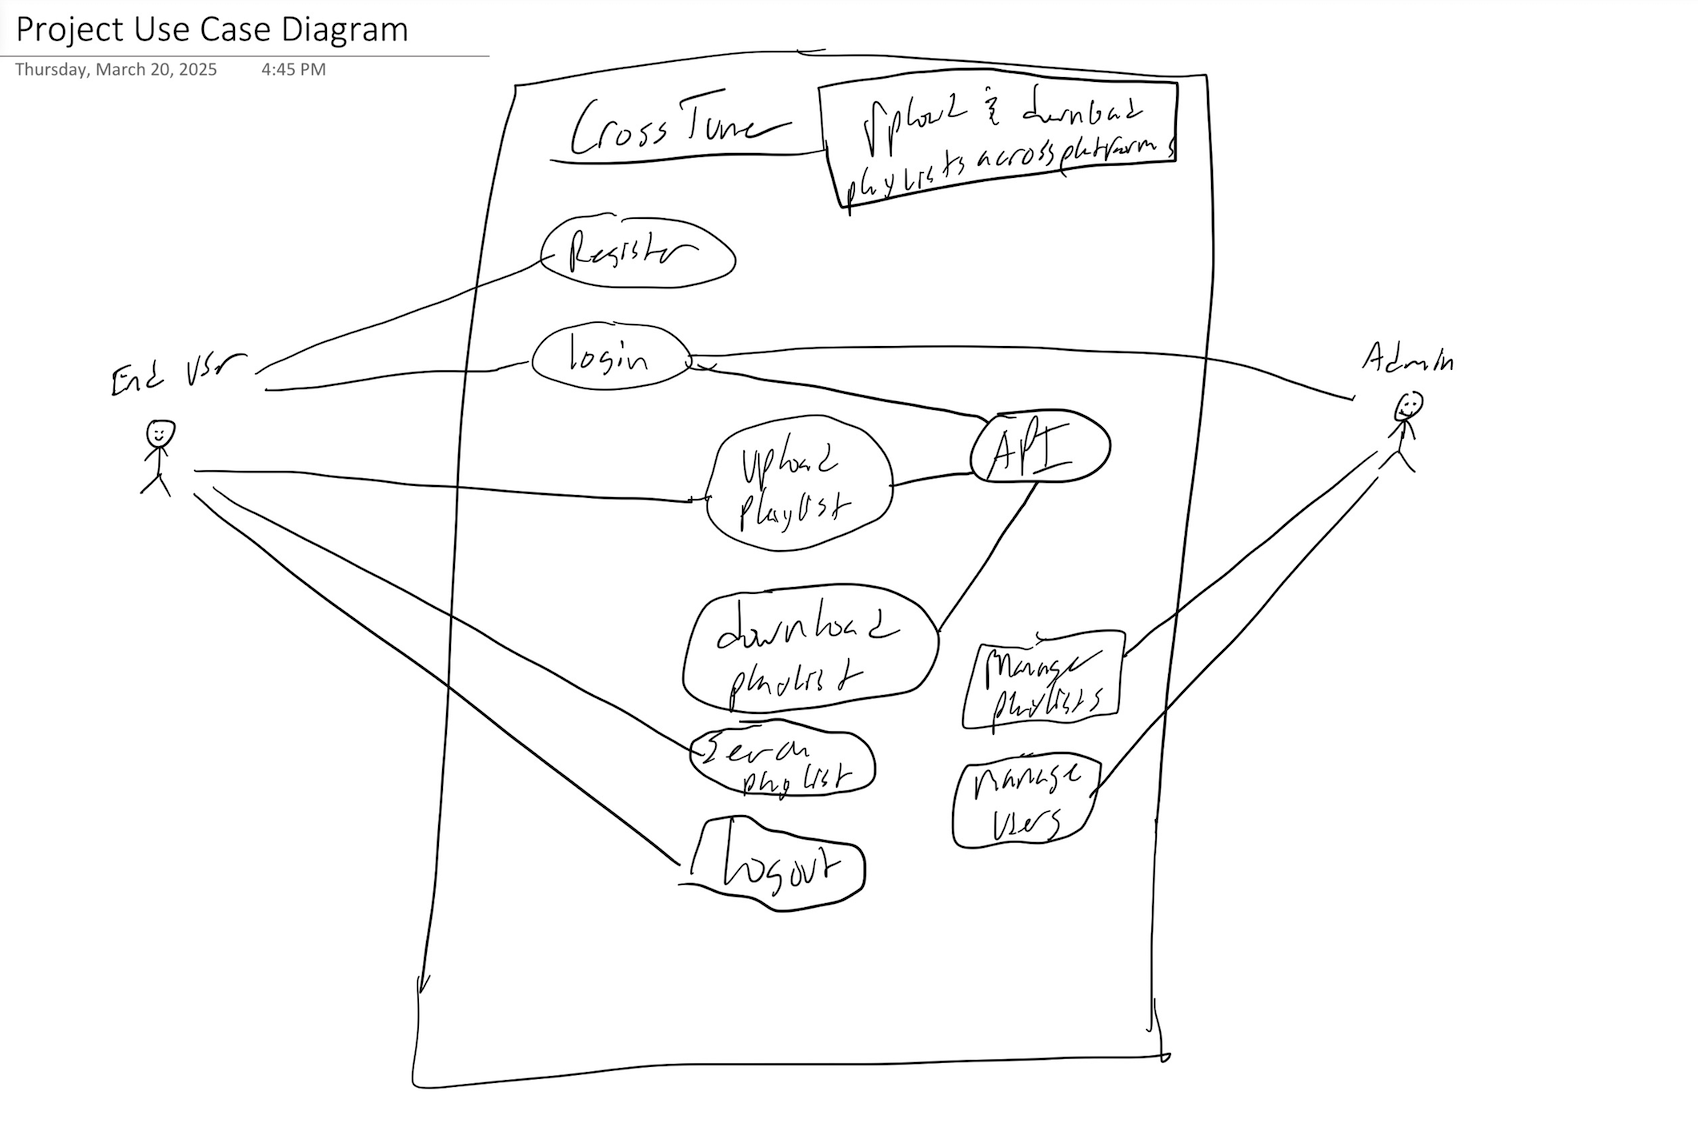 Project Use Case Diagram
Thursday, March 20, 2025 4:45 PM
Cross Tune
Upload & download
playlists across platforms
Register
End User
login
Admin
API
Upload
playlist
download
playlist
Manage
playlists
Serch
playlist
Manage
Users
Logout